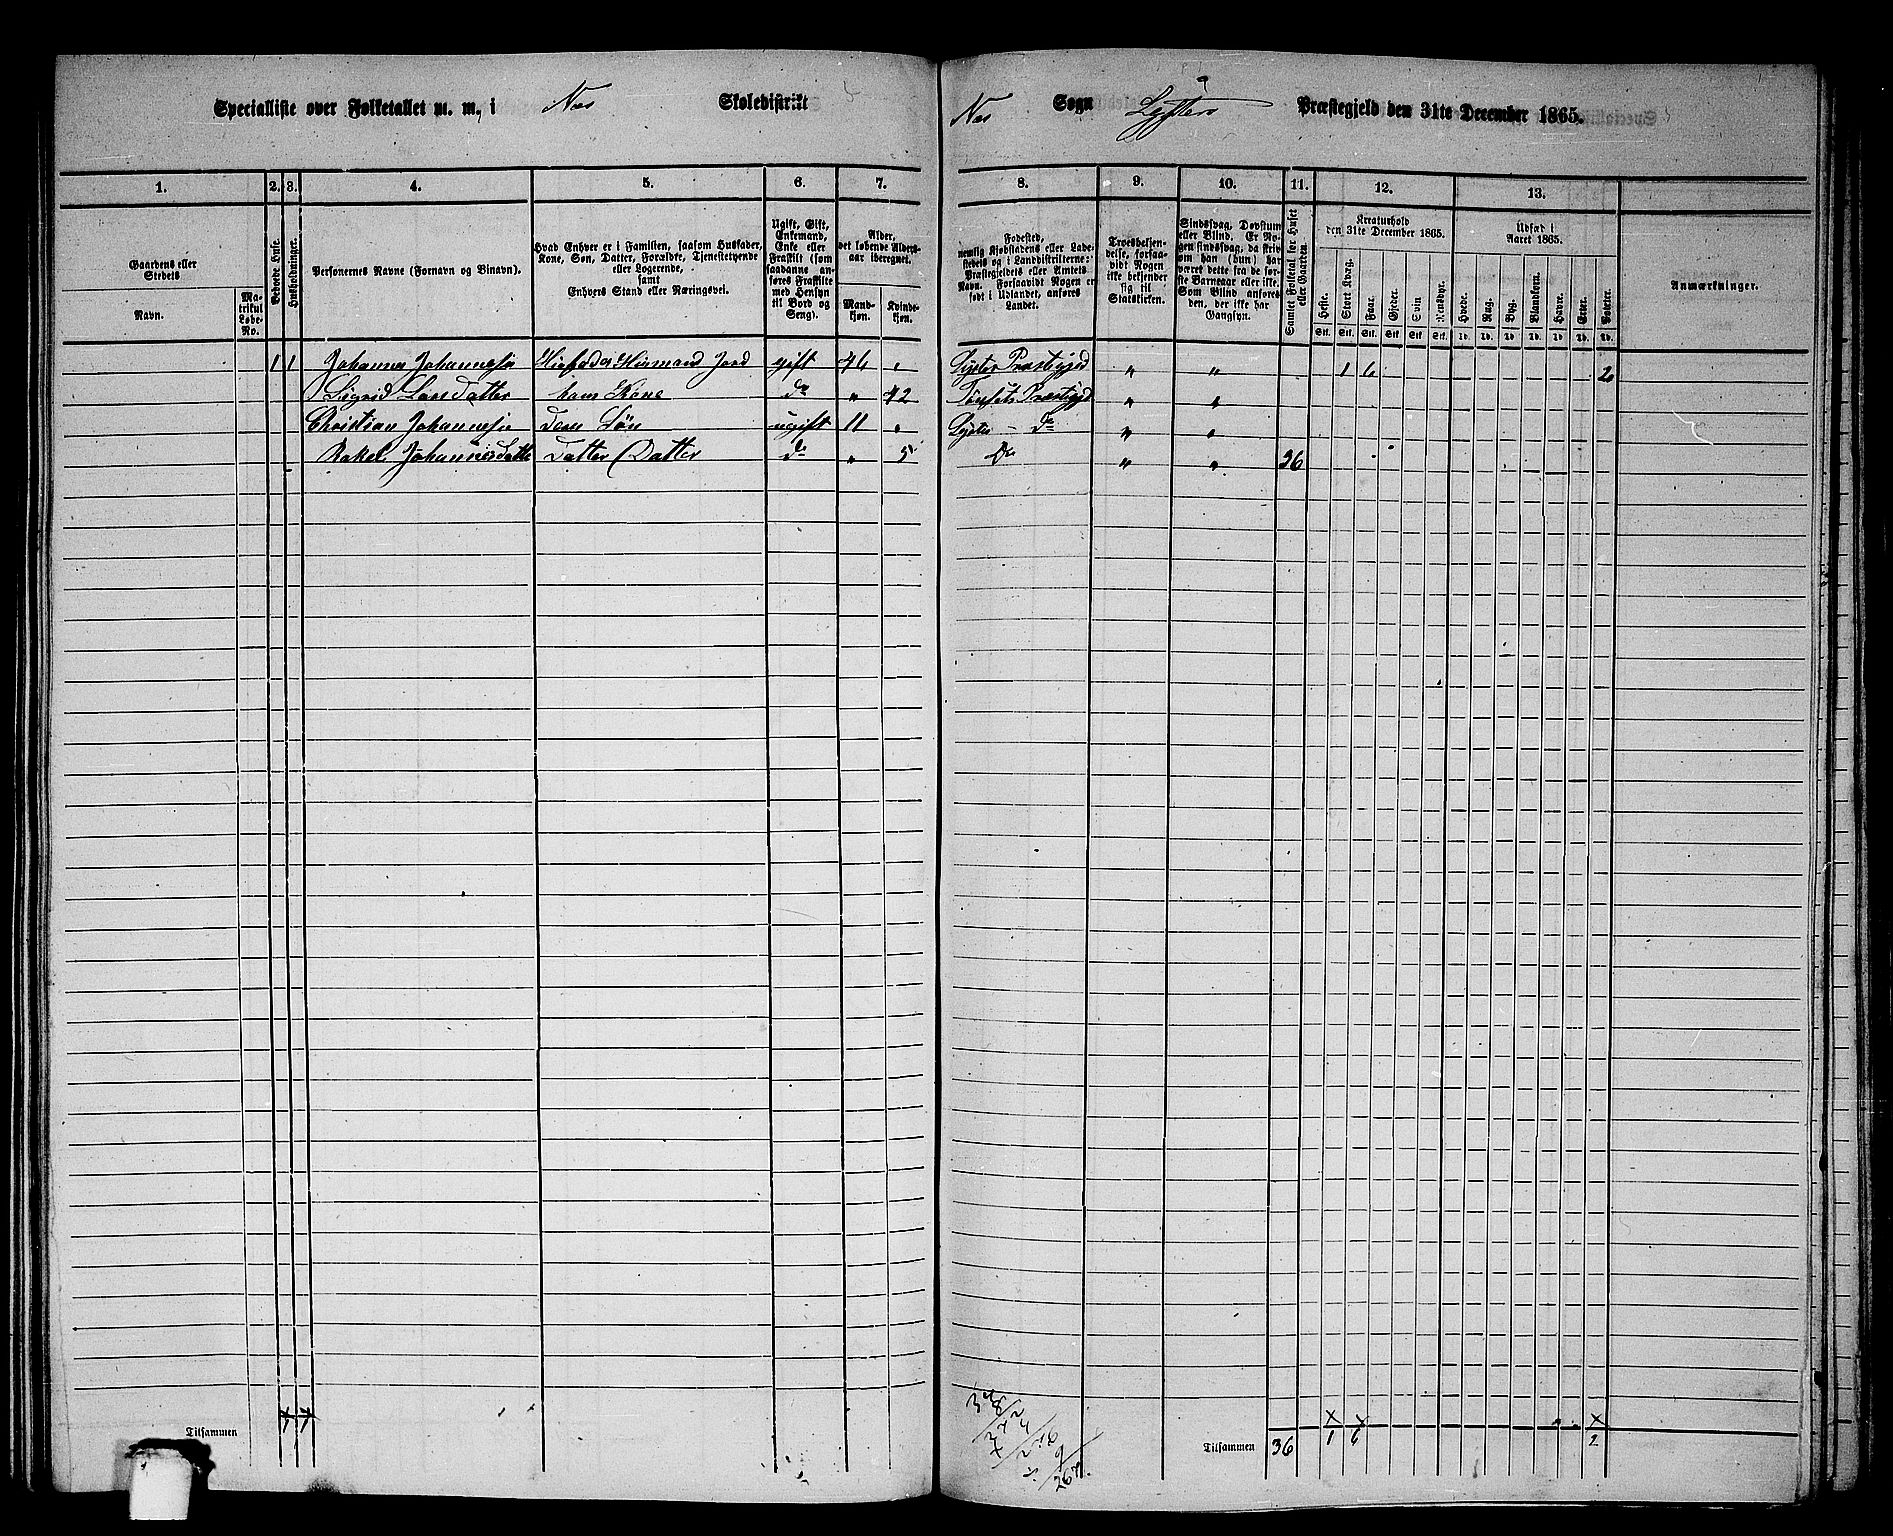 Specialliste over Folketallet m. m, i Nes Skoledistrikt
Nes Sogn Lyster Præstegjeld den 31te December 1865.
1. 2. 3. 4. 5. 6. 7. 8. 9. 10. 11. 12. 13.
Gaardens eller Stedets
Navn.
Matrikul Løbe-No.
Beboede Huse.
Husholdninger.
Personernes Navne (Fornavn og Binavn).
Hvad Enhver er i Familien, saasom Husfader, Kone, Søn, Datter, Forældre, Tjenestetyende eller Logerende, samt Enhvers Stand eller Næringsvei.
Ugift, Gift, Enkemand, Enke eller Fraskilt (som saadanne anføres Fraskilte med Hensyn til Bord og Seng).
Alder, det løbende Alders-aar iberegnet.
Mand-kjøn. Kvinde-kjøn.
Fødested, nemlig Kjøbstadens eller Ladestedets og i Landdistrikterne: Præstegjeldets eller Amtets Navn. Forsaavidt Nogen er født i Udlandet, anføres Landet.
Troesbekjendelse, forsaavidt Nogen ikke bekjender sig til Statskirken.
Sindssvag, Døvstum eller Blind. Er Nogen sindssvag, da skrives om han (hun) har været dette fra de første Barneaar eller ikke. Som Blind anføres den, der ikke har Gangsyn.
Samlet Folketal for Huset eller Gaarden.
Kreaturhold den 31te December 1865.
Heste. Stort Kvæg. Faar. Gjeder. Svin Rensdyr.
Udsæd i Aaret 1865.
Hvede. Rug. Byg. Blandkorn. Havre. Erter. Poteter.
Anmærkninger.
1 1 Johannes Johannessen Husfader Husmand Jord gift 46 " Lyster Præstegjeld " " 1 6 2
Sigrid Larsdatter hans Kone do " 42 Præstegjd " "
Christian Johannessen deres Søn ugift 11 " Lyster – do " "
Rakel Johannesdatter Datter (Datter do " 5 Do " " 36
Tilsammen 1 1
Tilsammen 36 1 6 2